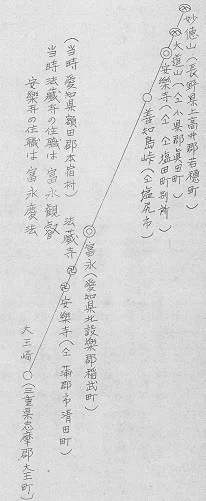 妙徳山(長野県上高井郡若穂町)
大道山(〃小県郡真田町)
安樂寺(〃〃塩田町別所)
善知鳥峠(〃塩尻市)
富永(愛知県北設樂郡稲武町)
安樂寺(〃蒲郡市清田町)
法蔵寺
(当時愛知県額田郡本宿村
当時法蔵寺の住職は富永観
安樂寺の住職は富永慶法
大王崎
(三重県志摩郡大王町)